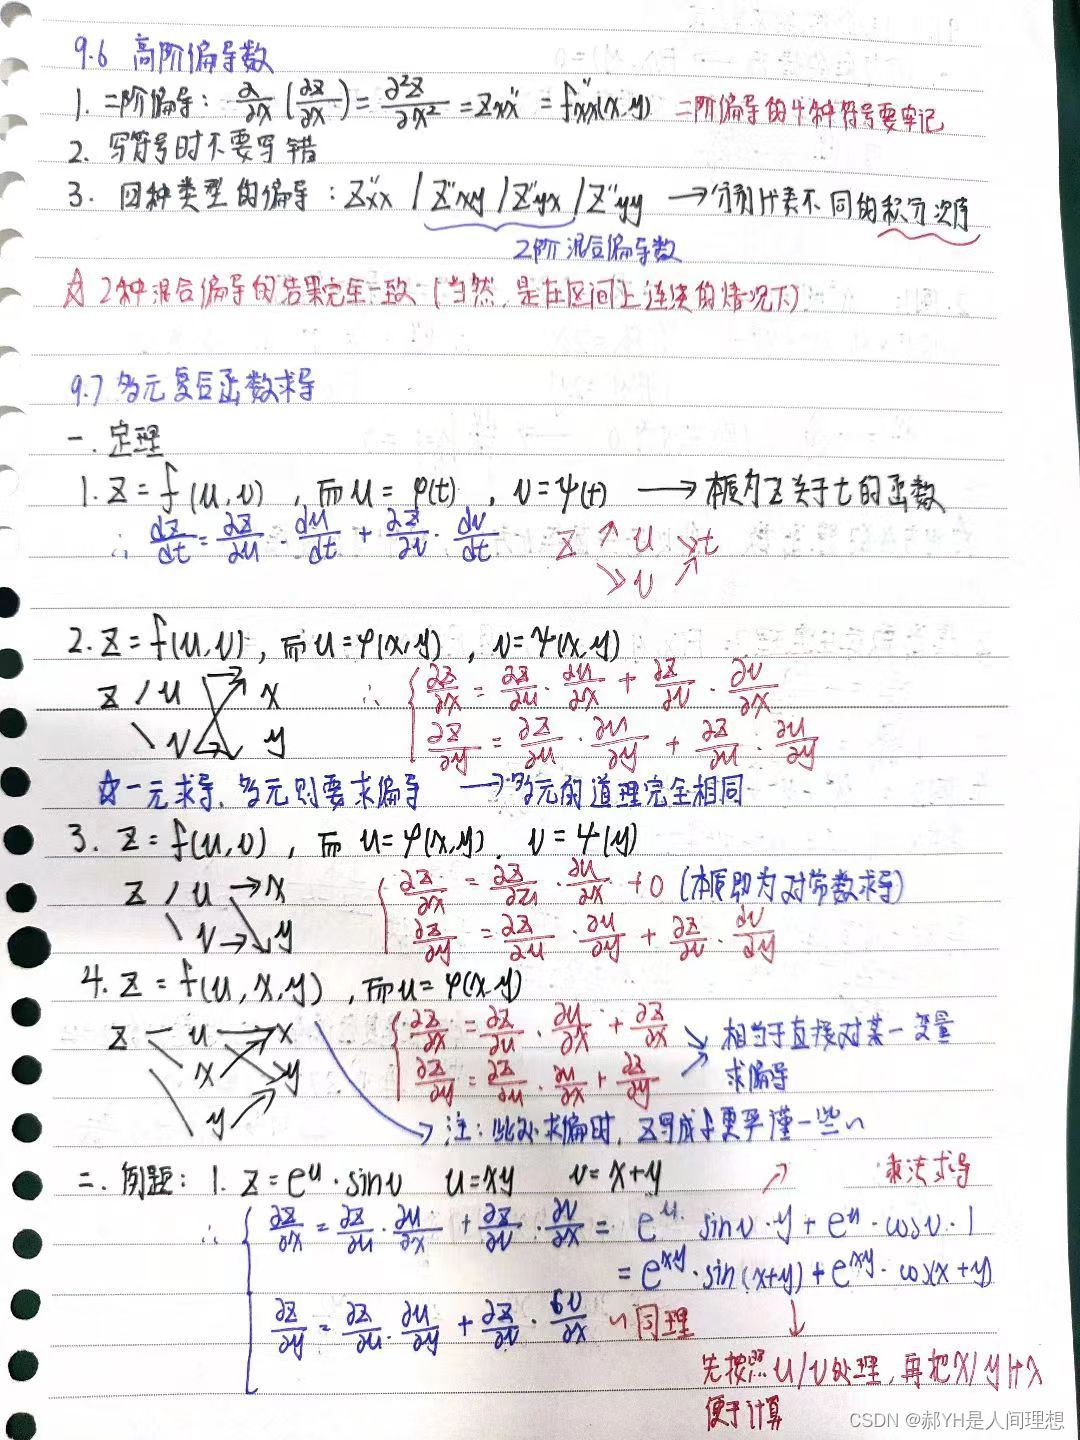 9.6 高阶偏导数
1. 二阶偏导: ∂/∂x (∂z/∂x) = ∂²z/∂x² = Z''xx = f''xx(x,y) 二阶偏导的4种符号要牢记
2. 写符号时不要写错
3. 四种类型的偏导: Z''xx / Z''xy / Z''yx / Z''yy → 分别代表不同的积分次序
2阶混合偏导数
☆ 2种混合偏导的结果完全一致 (当然, 是在区间上连续的情况下)
9.7 多元复合函数求导
一. 定理
1. Z = f(u,v), 而 u = φ(t), v = ψ(t) → 本质为Z关于t的函数
∴ dz/dt = ∂z/∂u · du/dt + ∂z/∂v · dv/dt z ↗ u ↘ t
↘ v ↗
2. Z = f(u,v), 而 u = φ(x,y), v = ψ(x,y)
z / u → x ∴ { ∂z/∂x = ∂z/∂u · ∂u/∂x + ∂z/∂v · ∂v/∂x
\ v y ∂z/∂y = ∂z/∂u · ∂u/∂y + ∂z/∂u · ∂u/∂y
☆ 一元求导, 多元则要求偏导 → 多元的道理完全相同
3. Z = f(u,v), 而 u = φ(x,y), v = ψ(y)
z / u → x { ∂z/∂x = ∂z/∂u · ∂u/∂x + 0 (本质即为对常数求导)
\ v → y ∂z/∂y = ∂z/∂u · ∂u/∂y + ∂z/∂v · dv/∂y
4. Z = f(u,x,y), 而u = φ(x,y)
z — u → x { ∂z/∂x = ∂z/∂u · ∂u/∂x + ∂z/∂x 相当于直接对某一变量
x y ∂z/∂y = ∂z/∂u · ∂u/∂x + ∂z/∂y 求偏导
y → 注: 此处求偏时, z写成f更严谨一些~
二. 例题: 1. Z = e^u · sinv u = xy v = x+y 乘法求导
∴ { ∂z/∂x = ∂z/∂u · ∂u/∂x + ∂z/∂v · ∂v/∂x = e^u · sinv · y + e^u · cosv · 1
= e^xy · sin(x+y) + e^xy · cos(x+y)
∂z/∂y = ∂z/∂u · ∂u/∂y + ∂z/∂v · ∂v/∂x ~ 同理
先按照u/v处理, 再把x/y代入
便于计算
CSDN @郝YH是人间理想